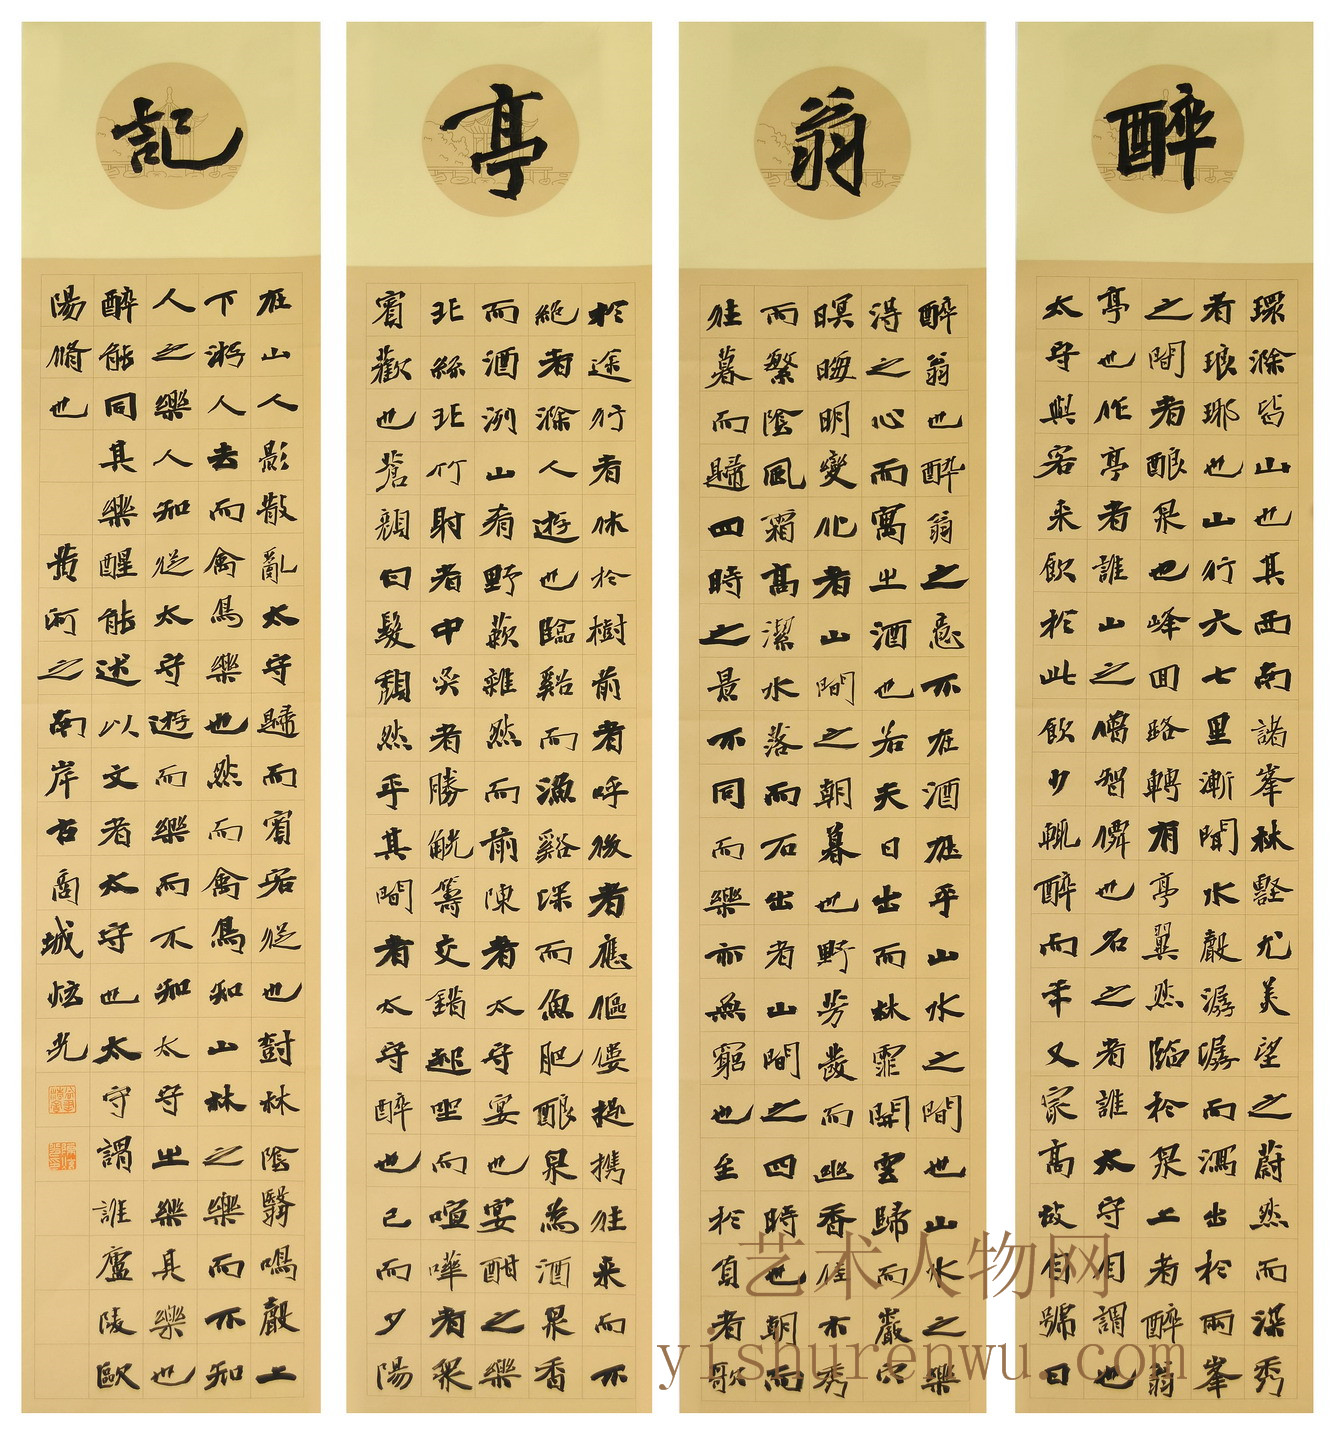 醉
翁
亭
記
環滁皆山也其西南諸峯林壑尤美望之蔚然而深秀
者琅琊也山行六七里漸聞水聲潺潺而瀉出於兩峯
之間者釀泉也峰回路轉有亭翼然臨於泉上者醉翁
亭也作亭者誰山之僧智僊也名之者誰太守自謂也
太守與客來飲於此飲少輒醉而年又最高故自號曰
醉翁也醉翁之意不在酒在乎山水之間也山水之樂
得之心而寓之酒也若夫日出而林霏開雲歸而巖穴
暝晦明變化者山間之朝暮也野芳發而幽香佳木秀
而繁陰風霜高潔水落而石出者山間之四時也朝而
往暮而歸四時之景不同而樂亦無窮也至於負者歌
於途行者休於樹前者呼後者應傴僂提攜往來而不
絕者滁人遊也臨谿而漁谿深而魚肥釀泉為酒泉香
而酒洌山肴野蔌雜然而前陳者太守宴也宴酣之樂
非絲非竹射者中奕者勝觥籌交錯起坐而喧嘩者眾
賓歡也蒼顏白髮頹然乎其間者太守醉也已而夕陽
在山人影散亂太守歸而賓客從也樹林陰翳鳴聲上
下游人去而禽鳥樂也然而禽鳥知山林之樂而不知
人之樂人知從太守遊而樂而不知太守之樂其樂也
醉能同其樂醒能述以文者太守也太守謂誰廬陵歐
陽脩也 黃河之南岸古商城炫光
艺术人物网
yishurenwu.com